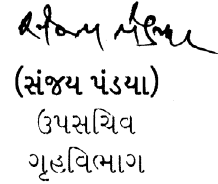 (સંજય પંડયા)
ઉપસચિવ
ગૃહવિભાગ